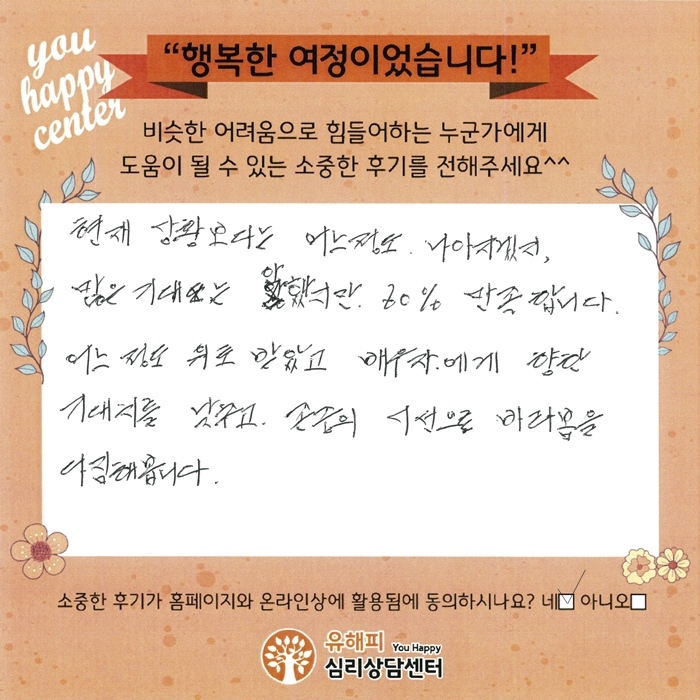 you
happy
center
“행복한 여정이었습니다!”
비슷한 어려움으로 힘들어하는 누군가에게
도움이 될 수 있는 소중한 후기를 전해주세요^^
현재 상황보다는 어느정도. 나아지겠지,
많은 기대보는 안했지만. 80% 만족합니다.
어느 정도 위로 받았고 배우자.에게 향한
기대치를 낮추고. 존중의 시선으로 바라봄을
다짐해봅니다.
소중한 후기가 홈페이지와 온라인상에 활용됨에 동의하시나요? 네☑ 아니오□
유해피 You Happy
심리상담센터